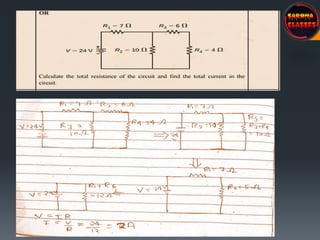 OR
R₁ – 7 Ω R₃ – 6 Ω
V – 24 V R₂ – 10 Ω R₄ – 4 Ω
Calculate the total resistance of the circuit and find the total current in the
circuit.
SARDMA
CLASSES
R₁=7Ω R₃=6Ω
V=24V
10Ω
R₄=4Ω
R₁=7Ω
R₅=
R₃+R₄
=10Ω
R₁=7Ω
V=24V
R₁+R₆
=12Ω
V=24V
R₆=5Ω
V=IR
I = V/R = 24/12 = 2A